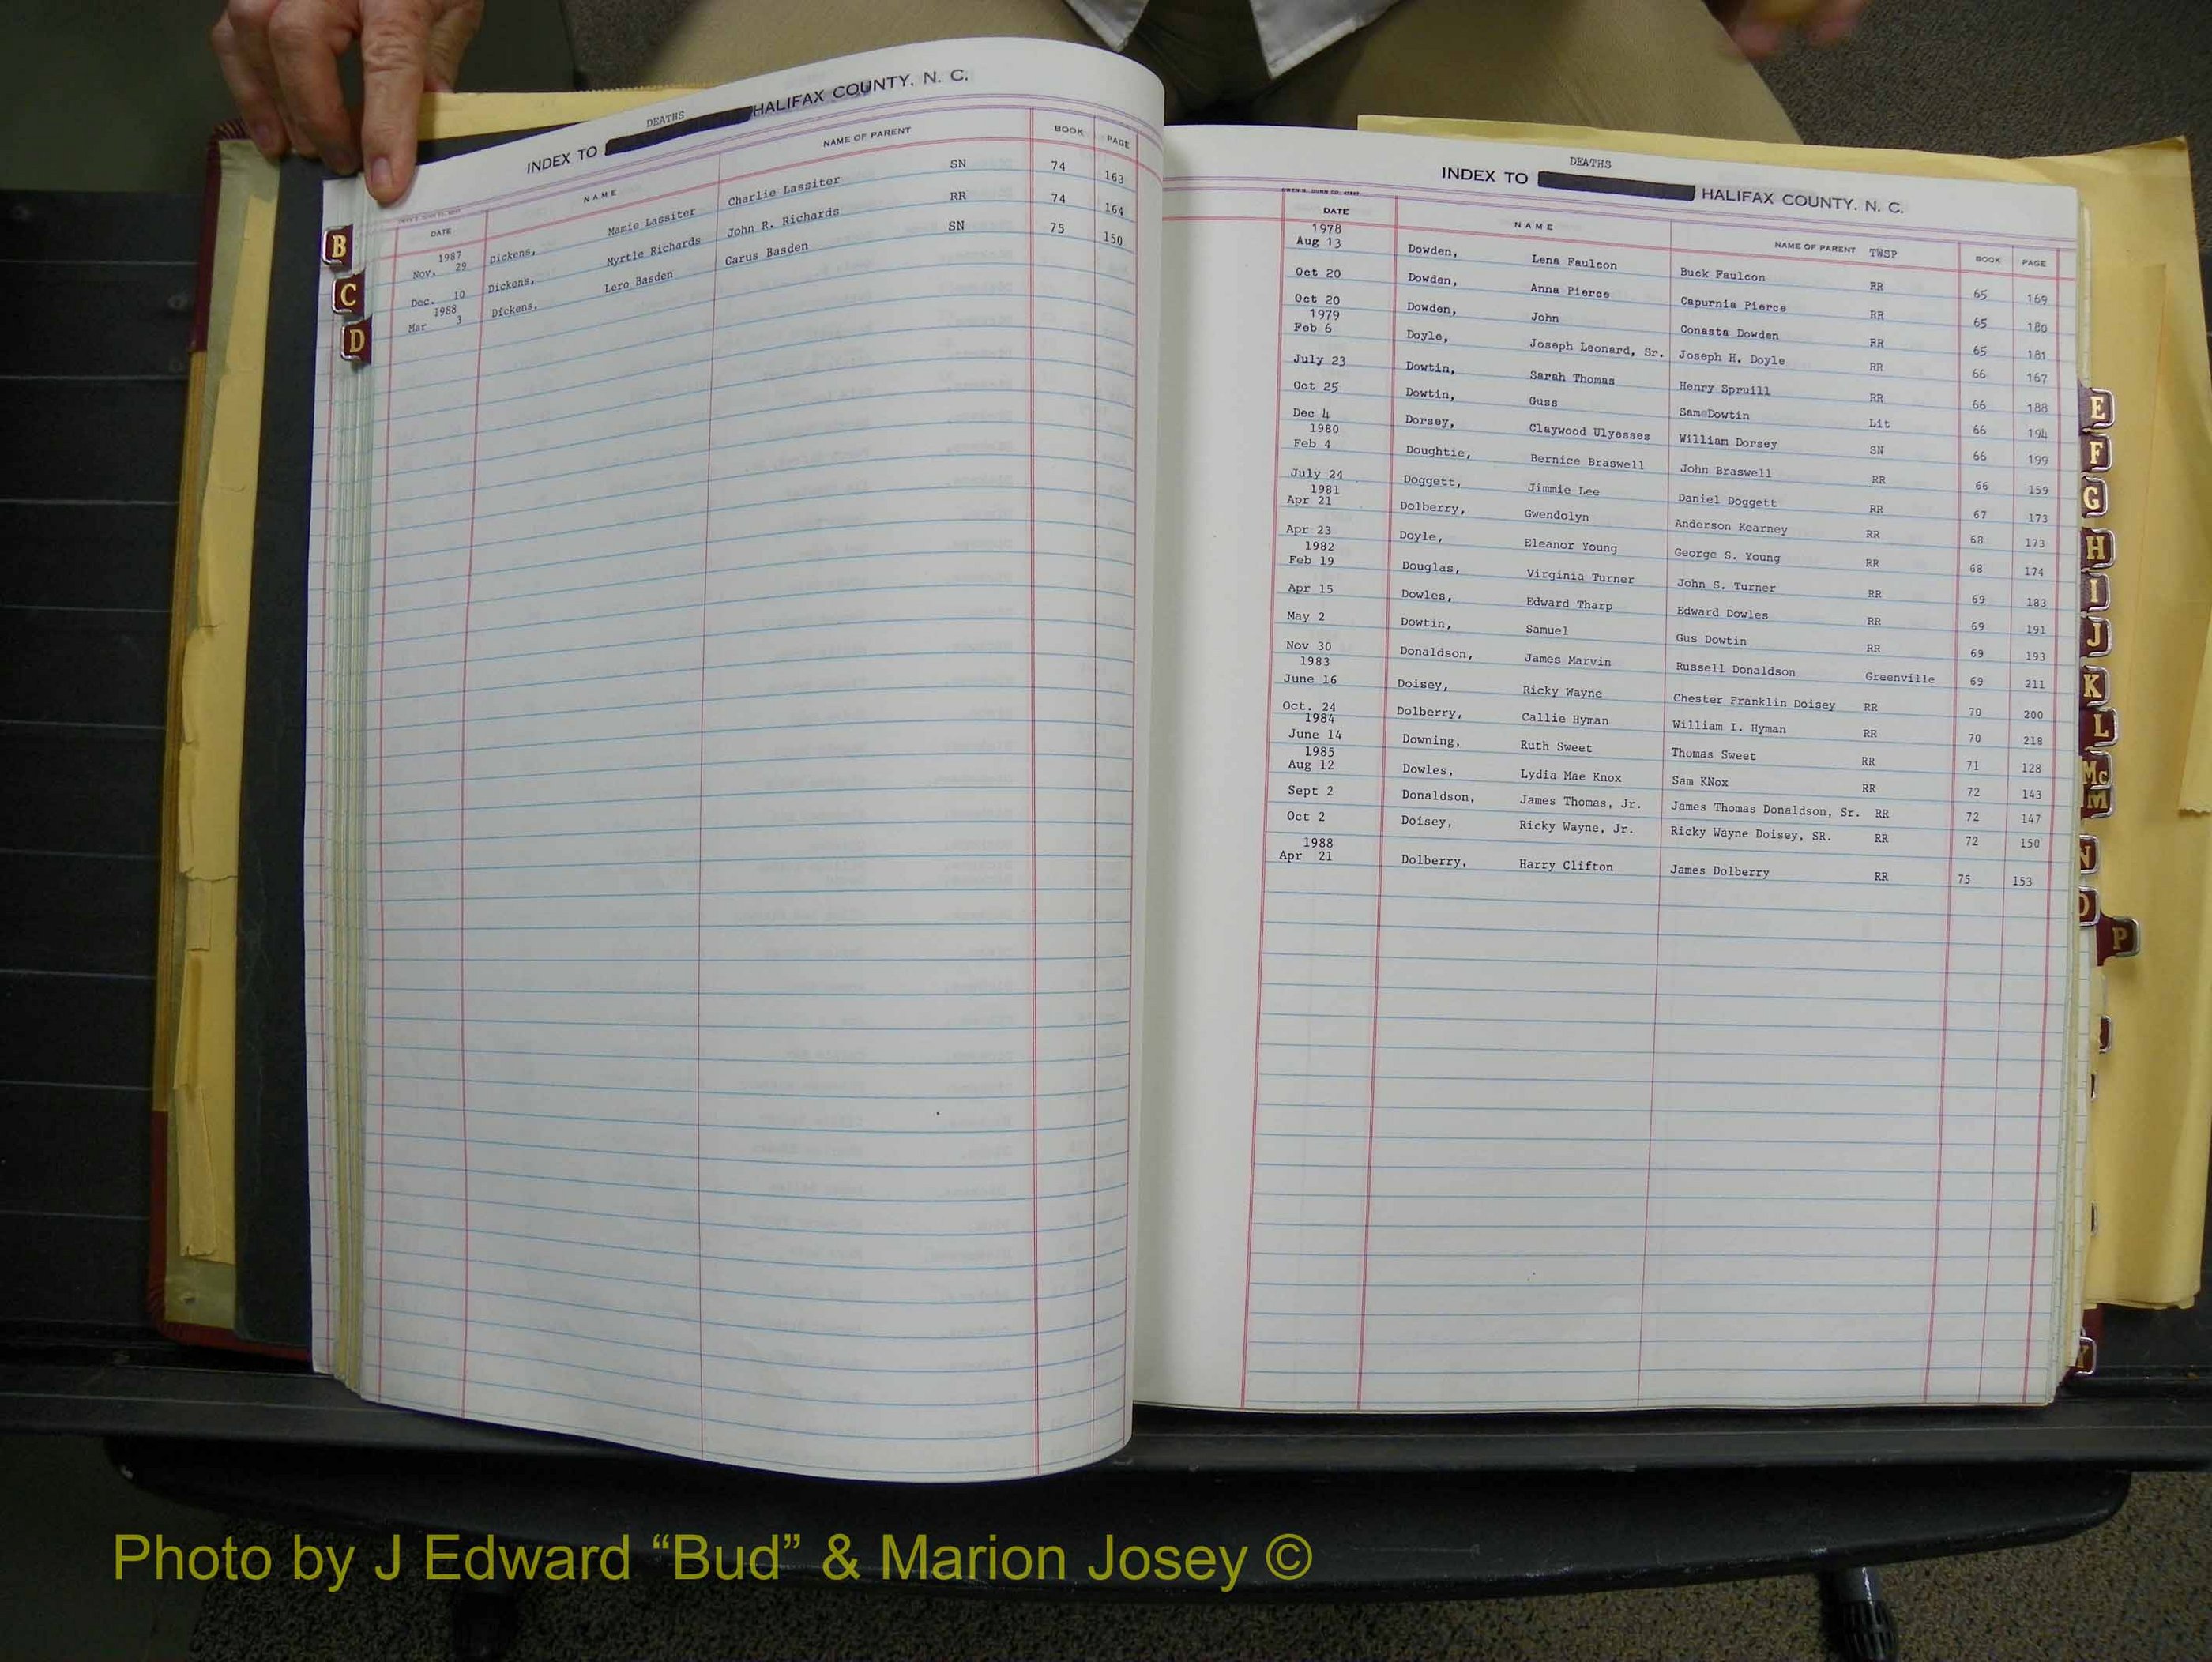 DEATHS
INDEX TO HALIFAX COUNTY. N. C.
DATE NAME NAME OF PARENT BOOK PAGE
1987
Nov. 29 Dickens, Mamie Lassiter Charlie Lassiter SN 74 163
Dec. 10 Dickens, Myrtle Richards John R. Richards RR 74 164
1988
Mar 3 Dickens. Lero Basden Carus Basden SN 75 150
B
C
D
DEATHS
INDEX TO HALIFAX COUNTY. N. C.
DATE NAME NAME OF PARENT TWSP BOOK PAGE
1978
Aug 13 Dowden, Lena Faulcon Buck Faulcon RR 65 169
Oct 20 Dowden, Anna Pierce Capurnia Pierce RR 65 180
Oct 20 Dowden, John Conasta Dowden RR 65 181
1979
Feb 6 Doyle, Joseph Leonard, Sr. Joseph H. Doyle RR 66 167
July 23 Dowtin, Sarah Thomas Henry Spruill RR 66 188
Oct 25 Dowtin, Guss Sam Dowtin Lit 66 194
Dec 4 Dorsey, Claywood Ulyesses William Dorsey SN 66 199
1980
Feb 4 Doughtie, Bernice Braswell John Braswell RR 66 159
July 24 Doggett, Jimmie Lee Daniel Doggett RR 67 173
1981
Apr 21 Dolberry, Gwendolyn Anderson Kearney RR 68 173
Apr 23 Doyle, Eleanor Young George S. Young RR 68 174
1982
Feb 19 Douglas, Virginia Turner John S. Turner RR 69 183
Apr 15 Dowles, Edward Tharp Edward Dowles RR 69 191
May 2 Dowtin, Samuel Gus Dowtin RR 69 193
Nov 30 Donaldson, James Marvin Russell Donaldson Greenville 69 211
1983
June 16 Doisey, Ricky Wayne Chester Franklin Doisey RR 70 200
Oct. 24 Dolberry, Callie Hyman William I. Hyman RR 70 218
1984
June 14 Downing, Ruth Sweet Thomas Sweet RR 71 128
1985
Aug 12 Dowles, Lydia Mae Knox Sam KNox RR 72 143
Sept 2 Donaldson, James Thomas, Jr. James Thomas Donaldson, Sr. RR 72 147
Oct 2 Doisey, Ricky Wayne, Jr. Ricky Wayne Doisey, SR. RR 72 150
1988
Apr 21 Dolberry, Harry Clifton James Dolberry RR 75 153
E
F
G
H
I
J
K
L
Mc
M
N
O
P
Y
Photo by J Edward “Bud” & Marion Josey ©